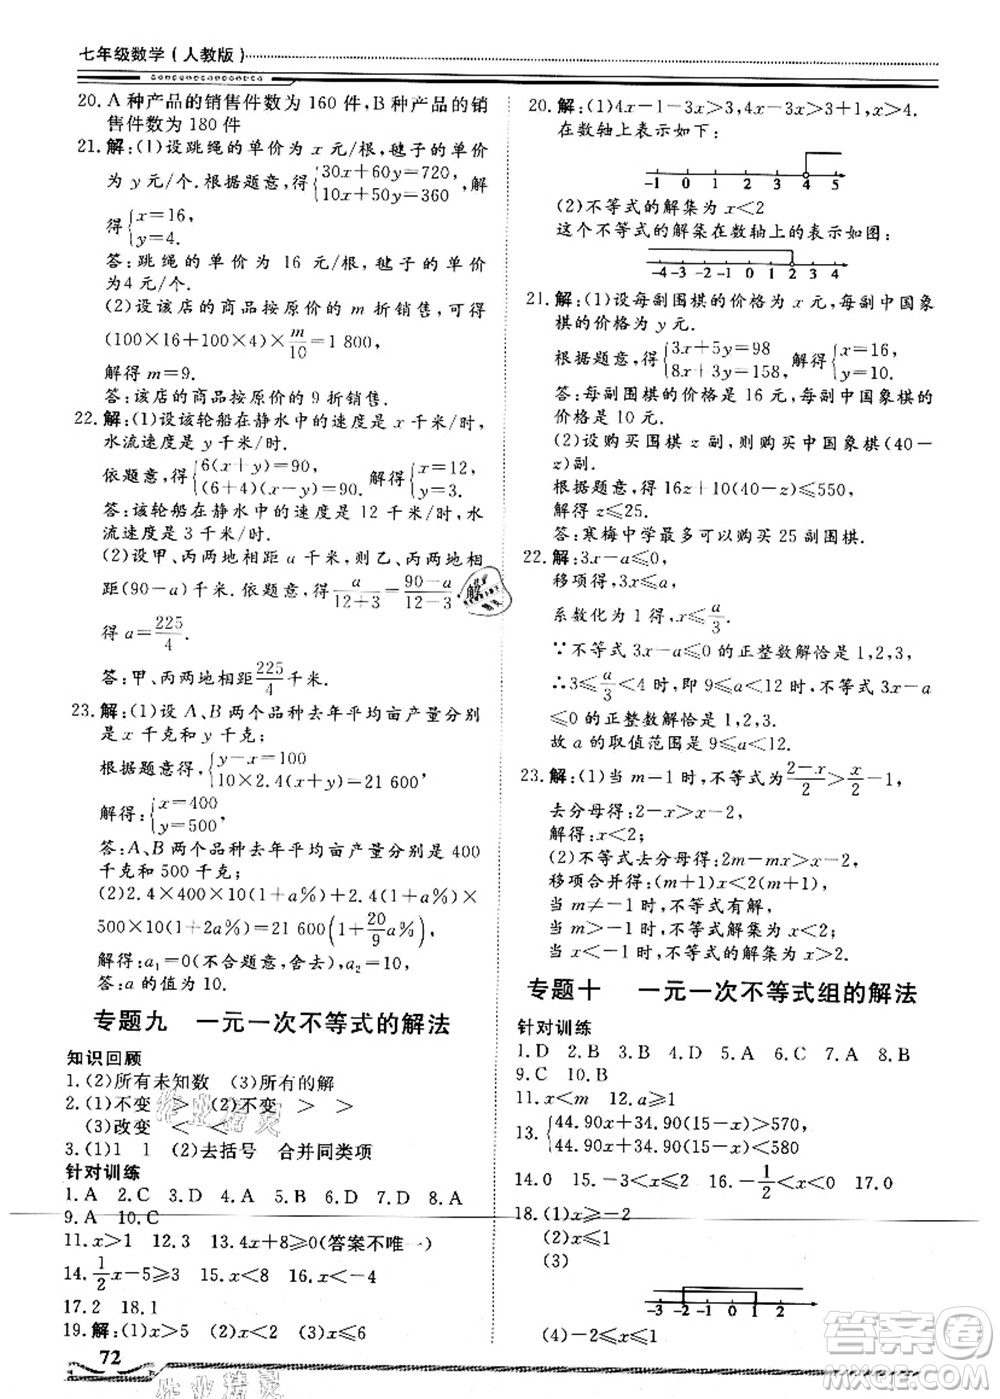 七年级数学(人教版)
20. A 种产品的销售件数为 160 件,B 种产品的销
售件数为 180 件
21. 解:(1)设跳绳的单价为 x 元/根,毽子的单价
为 y 元/个. 根据题意,得{30x+60y=720, 10x+50y=360 ,解
得{x=16, y=4.
答:跳绳的单价为 16 元/根,毽子的单价
为4 元/个.
(2)设该店的商品按原价的 m 折销售,可得
(100×16+100×4)×m/10=1 800,
解得 m=9.
答:该店的商品按原价的 9 折销售.
22. 解:(1)设该轮船在静水中的速度是 x 千米/时,
水流速度是 y 千米/时.
依题意,得{6(x+y)=90, (6+4)(x-y)=90. 解得{x=12, y=3.
答:该轮船在静水中的速度是 12 千米/时,水
流速度是 3 千米/时.
(2)设甲、丙两地相距 a 千米,则乙、丙两地相
距(90-a)千米. 依题意,得 a/(12+3)=(90-a)/(12-3),解
得 a=225/4.
答:甲、丙两地相距225/4千米.
23. 解:(1)设 A、B 两个品种去年平均亩产量分别
是 x 千克和 y 千克;
根据题意得,{y-x=100 10×2.4(x+y)=21 600,
解得:{x=400 y=500,
答:A、B 两个品种去年平均亩产量分别是 400
千克和 500 千克;
(2)2.4×400×10(1+a%)+2.4(1+2a%)
×500×10(1+a%)=21 600(1+20/9 a%),
解得:a₁=0(不合题意,舍去),a₂=10.
答:a 的值为 10.
专题九 一元一次不等式的解法
知识回顾
1.(2)所有未知数 (3)所有的解
2.(1)不变 > (2)不变 > >
(3)改变 < <
3.(1)1 1 (2)去括号 合并同类项
针对训练
1. A 2. C 3. D 4. A 5. B 6. B 7. B 8. B
9. A 10. C
11. x>1 12. 3 13. 4x≥0(答案不唯一)
14. 1/2x-5≥3 15. x<8 16. x<-4
17. 2 18. 1
19. 解:(1)x>5 (2)x≤5
72
20. 解:(1)4x-1-3x>3,4x-3x>3+1,x>4.
在数轴上表示如下:
-1 0 1 2 3 4 5
(2)不等式的解集为 x<2
这个不等式的解集在数轴上的表示如图:
-4 -3 -2 -1 0 1 2 3 4
21. 解:(1)设每副围棋的价格为 x 元,每副中国象
棋的价格为 y 元.
根据题意,得{3x+5y=98 8x+3y=158, 解得{x=16, y=10.
答:每副围棋的价格是 16 元,每副中国象棋的
价格是 10 元.
(2)设购买围棋 z 副,则购买中国象棋(40-
z)副.
根据题意,得 16z+10(40-z)≤550,
解得 z≤25.
答:寒梅中学最多可以购买 25 副围棋.
22. 解:3x-a≤0,
移项得,3x≤a,
系数化为 1 得,x≤a/3.
∵不等式 3x-a≤0 的正整数解恰是 1,2,3,
∴3≤a/3<4 即 9≤a<12 时,不等式 3x-a
≤0 的正整数解恰是 1,2,3.
故 a 的取值范围是 9≤a<12.
23. 解:(1)当 m=1 时,不等式(2-x)/2>x/2-1,
去分母得:2-x>x-2,
解得:x<2;
(2)不等式去分母得:2m-mx>x-2,
移项合并得:(m+1)x<2(m+1),
当 m≠-1 时,不等式有解,
当 m>-1 时,不等式解集为 x<2;
当 x<-1 时,不等式的解集为 x>2.
专题十 一元一次不等式组的解法
针对训练
1. D 2. B 3. B 4. D 5. C 6. D 7. A 8. B
9. C 10. B
11. x<m 12. a≥1
13. {44.90x+34.90(15-x)>570, 44.90x+34.90(15-x)<580
14. 0 15. -1<x≤2 16. -1/2<x≤2 17. 0
18.(1)x≥-2
(2)x≤1
(3)
-3 -2 -1 0 1 2
(4)-2≤x≤1
答案卷
作业精灵
作业精灵